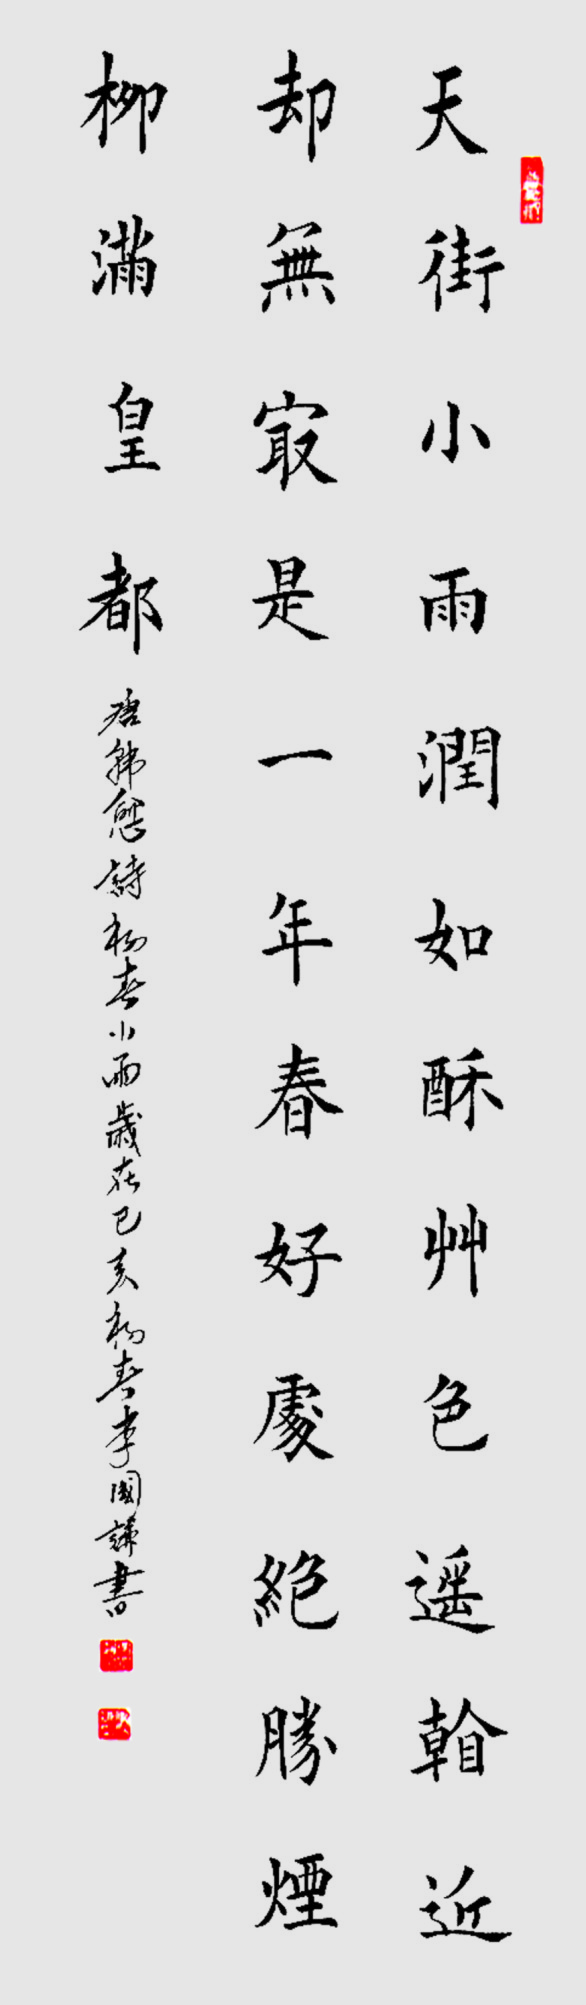 天街小雨潤如酥艸色遥䀹近
却無㝡是一年春好處絕勝煙
柳滿皇都
唐韓愈詩初春小雨歲在己亥初春李國謙書